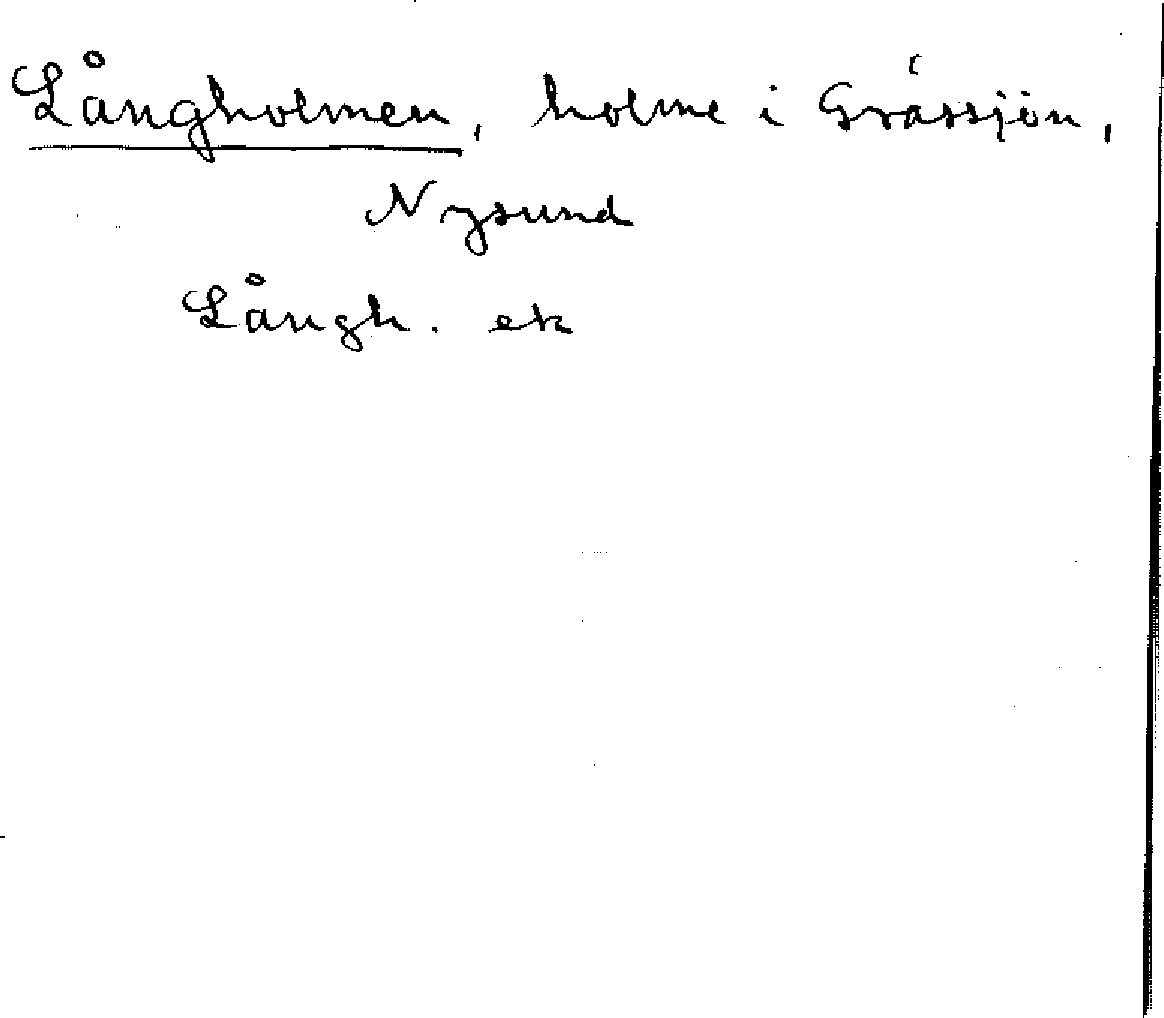 Långholmen, holme i Gråssjön,
Nysund
Långh. ek